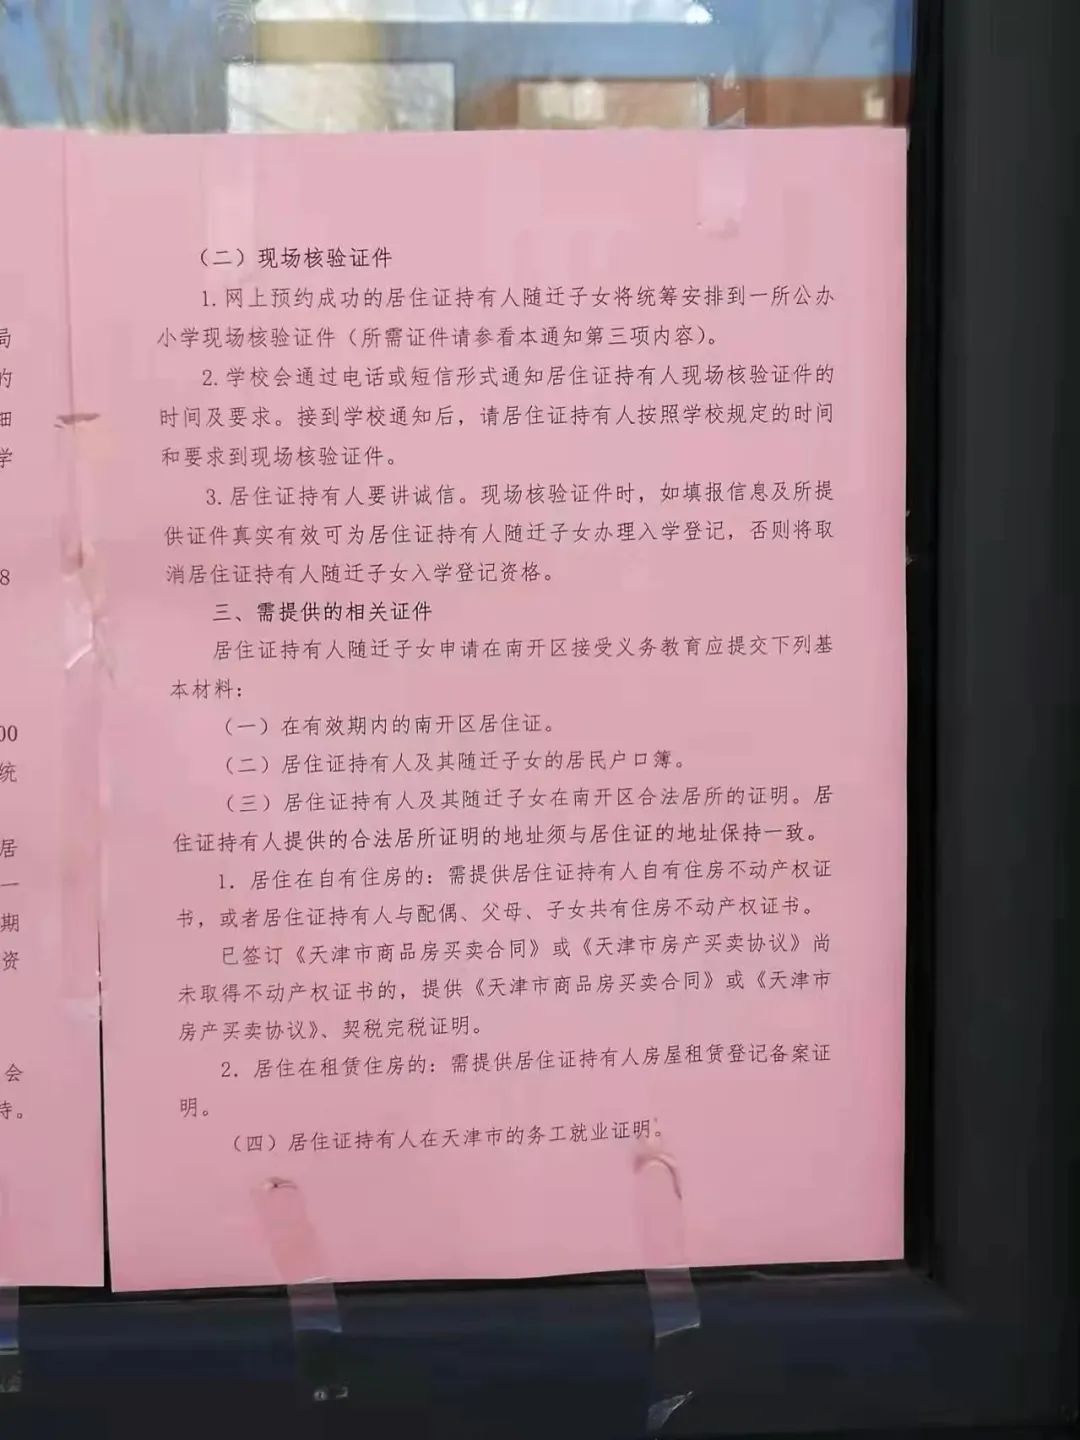 局
的
细
学
8
00
统
居
一
期
资
会
待。
（二）现场核验证件
1.网上预约成功的居住证持有人随迁子女将统筹安排到一所公办
小学现场核验证件（所需证件请参看本通知第三项内容）。
2.学校会通过电话或短信形式通知居住证持有人现场核验证件的
时间及要求。接到学校通知后，请居住证持有人按照学校规定的时间
和要求到现场核验证件。
3.居住证持有人要讲诚信。现场核验证件时，如填报信息及所提
供证件真实有效可为居住证持有人随迁子女办理入学登记，否则将取
消居住证持有人随迁子女入学登记资格。
三、需提供的相关证件
居住证持有人随迁子女申请在南开区接受义务教育应提交下列基
本材料：
（一）在有效期内的南开区居住证。
（二）居住证持有人及其随迁子女的居民户口簿。
（三）居住证持有人及其随迁子女在南开区合法居所的证明。居
住证持有人提供的合法居所证明的地址须与居住证的地址保持一致。
1．居住在自有住房的：需提供居住证持有人自有住房不动产权证
书，或者居住证持有人与配偶、父母、子女共有住房不动产权证书。
已签订《天津市商品房买卖合同》或《天津市房产买卖协议》尚
未取得不动产权证书的，提供《天津市商品房买卖合同》或《天津市
房产买卖协议》、契税完税证明。
2．居住在租赁住房的：需提供居住证持有人房屋租赁登记备案证
明。
（四）居住证持有人在天津市的务工就业证明。